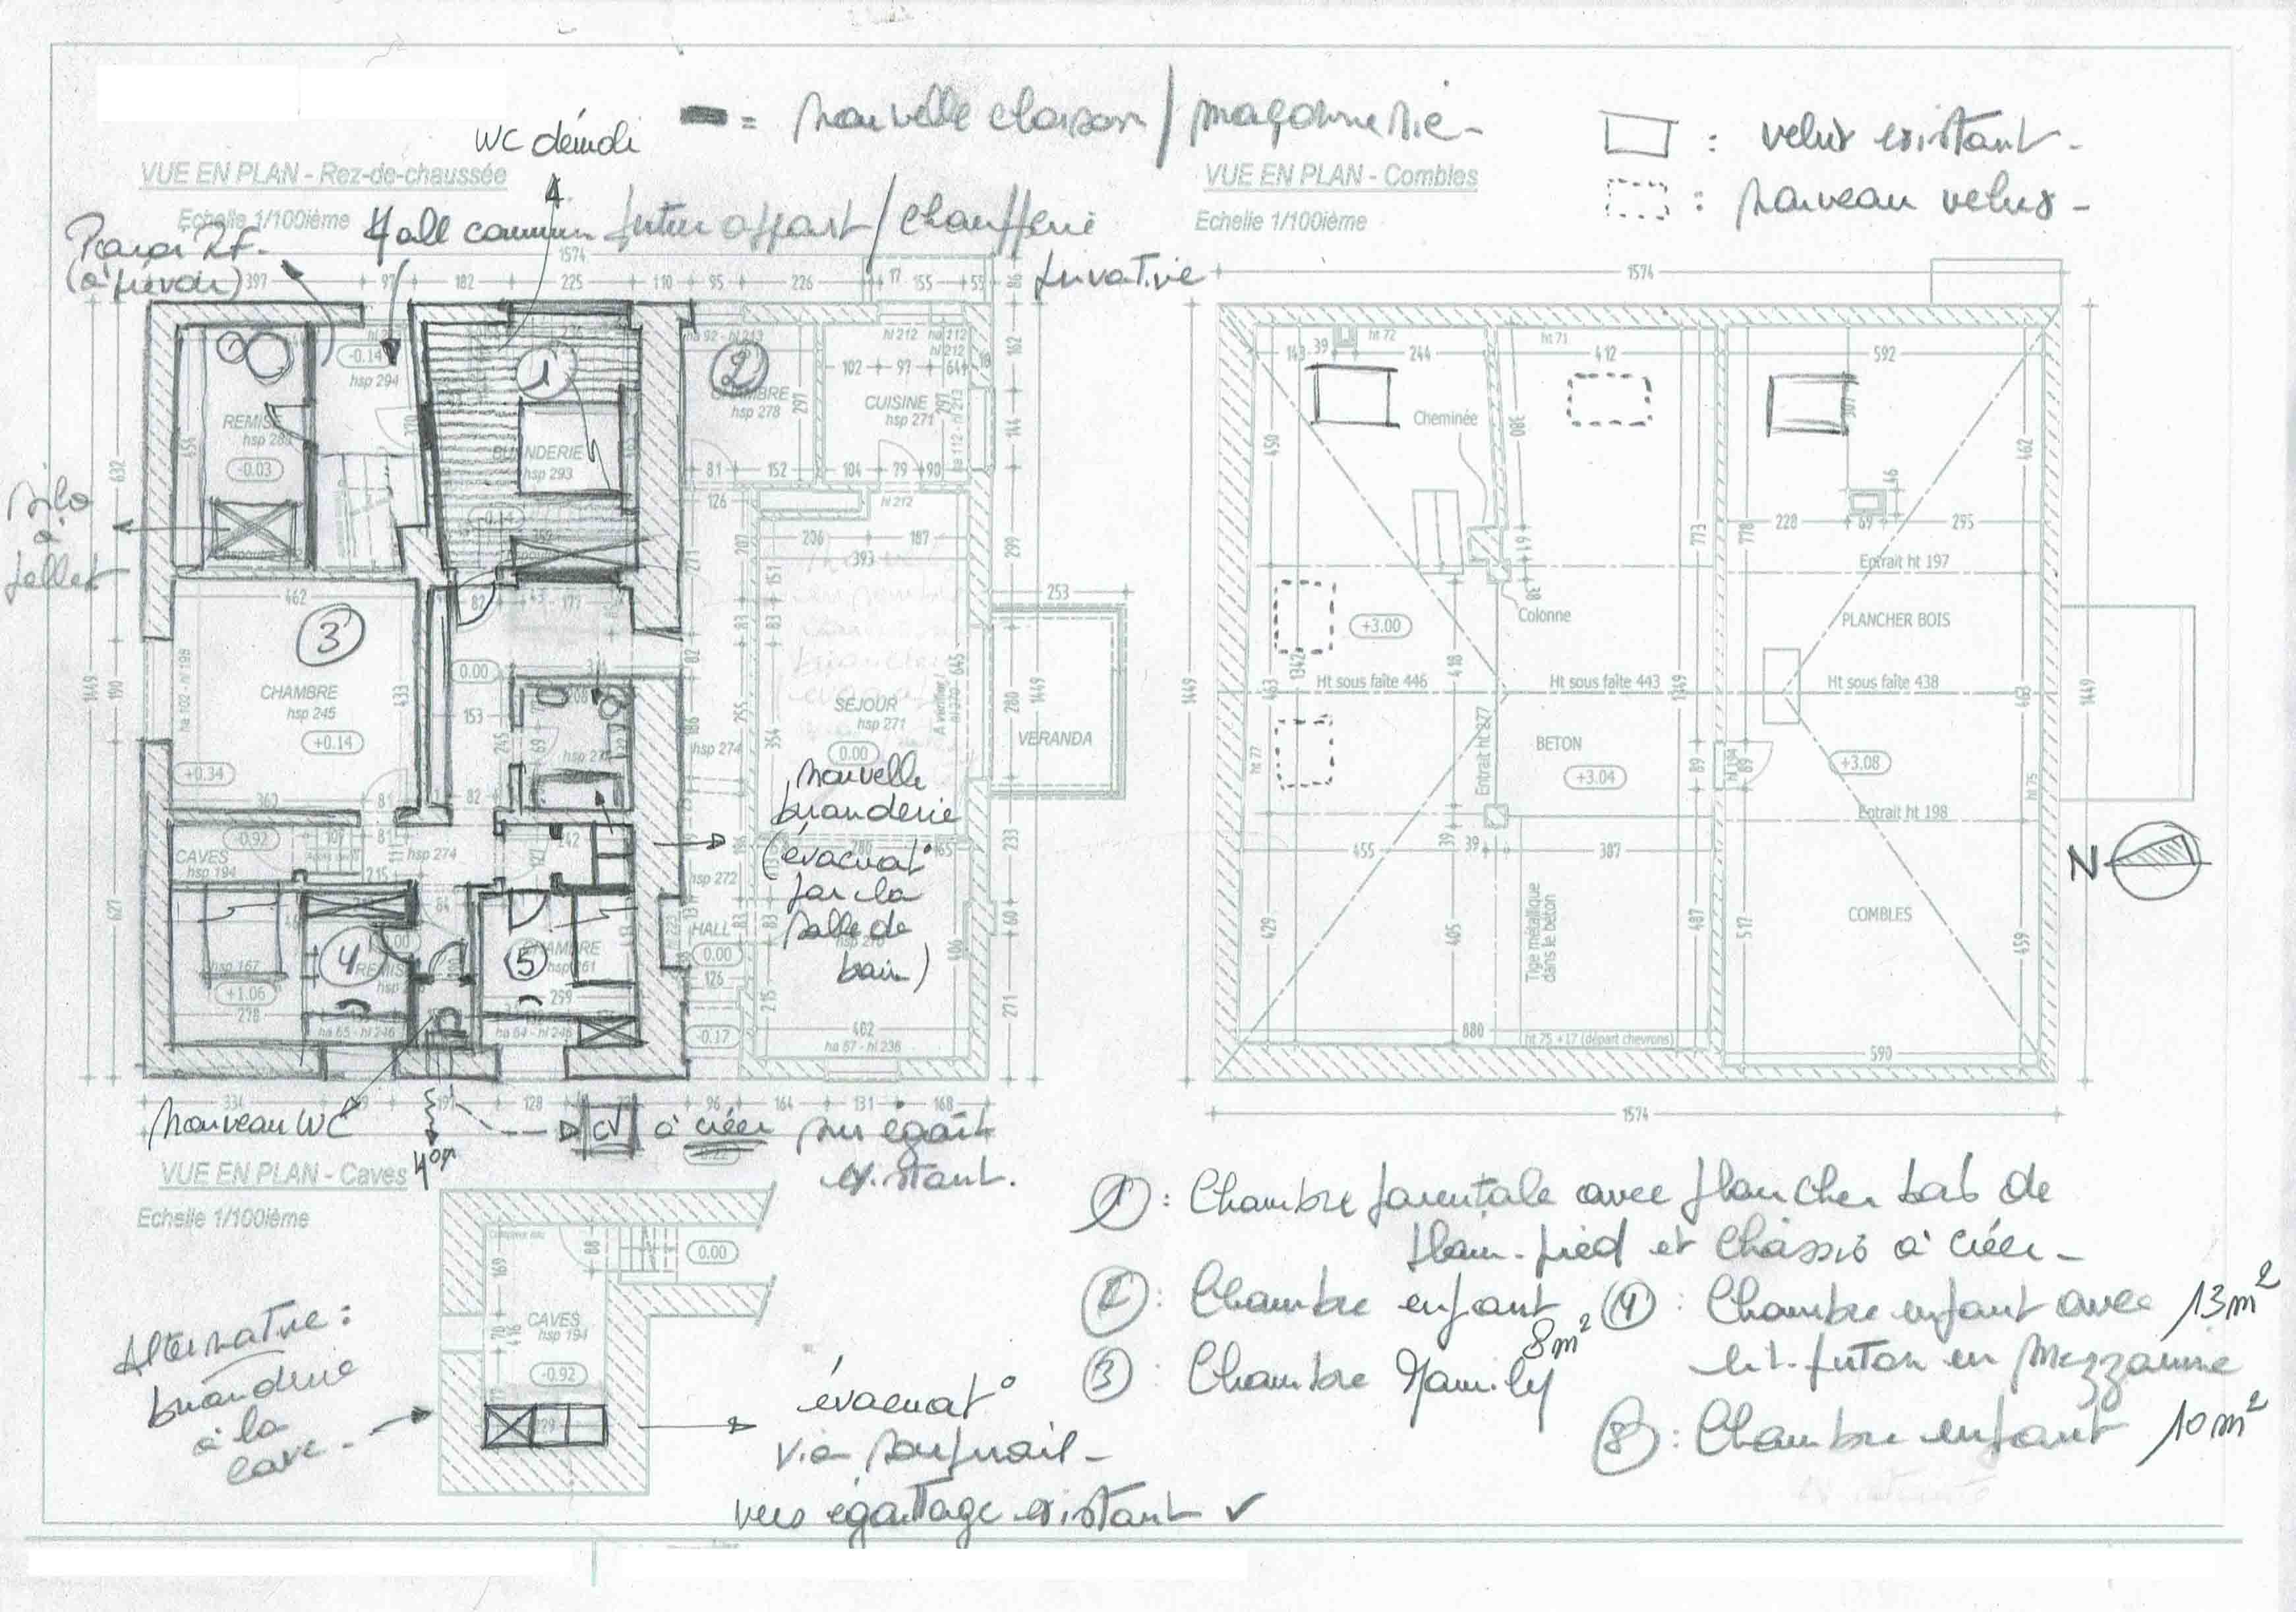 WC démoli
= nouvelle cloison / maçonnerie -
: velux existant -
: nouveau velux -
VUE EN PLAN - Rez-de-chaussée
Echelle 1/100ième
VUE EN PLAN - Combles
Echelle 1/100ième
Hall commun futur appart / chaufferie
privative
Paroi RF.
(à prévoir)
1574
397
97
182
225
110
95
226
17
155
55
86
1574
REMISE
-0.03
-0.14
hsp 294
1
BUANDERIE
hsp 293
2
CHAMBRE
hsp 278
CUISINE
hsp 271
hl 212
102
97
64
81
152
104
79
90
126
hl 212
206
187
393
silo
à
pellet
462
3
CHAMBRE
hsp 245
+0.14
+0.34
433
ha 102 - hl 198
0.00
153
82
245
81
hsp 274
SEJOUR
hsp 271
0.00
A vérifier !
253
VERANDA
nouvelle
buanderie
(évacuat°
par la
salle de
bain)
CAVES
hsp 194
-0.92
hsp 274
hsp 272
HALL
0.00
126
-0.17
4
REMISE
hsp 167
+1.06
278
ha 65 - hl 246
5
CHAMBRE
259
ha 64 - hl 246
462
ha 57 - hl 236
1449
632
190
627
162
144
299
280
1449
233
60
271
334
128
96
164
131
168
nouveau WC
CV à créer sur égout
existant.
143
39
ht 72
244
ht 71
412
592
Cheminée
450
380
462
228
69
295
46
Entrait ht 197
Colonne
+3.00
PLANCHER BOIS
1342
418
773
778
Ht sous faîte 446
Ht sous faîte 443
Ht sous faîte 438
463
1449
ht 77
Entrait ht 277
BETON
+3.04
+3.08
ht 75
Entrait ht 198
455
39
39
387
429
405
Tige métallique
dans le béton
487
517
COMBLES
459
880
ht 75 +17 (départ chevrons)
590
1449
1449
1574
N
VUE EN PLAN - Caves
Echelle 1/100ième
0.00
88
169
CAVES
hsp 194
70
416
-0.92
Alternative :
buanderie
à la
cave -
évacuat°
via soupirail -
vers égouttage existant
1 : Chambre parentale avec plancher bas de
plain-pied et châssis à créer -
2 : Chambre enfant 8m²
3 : Chambre Family
4 : Chambre enfant avec 13m²
lit-futon en mezzanine
5 : Chambre enfant 10m²